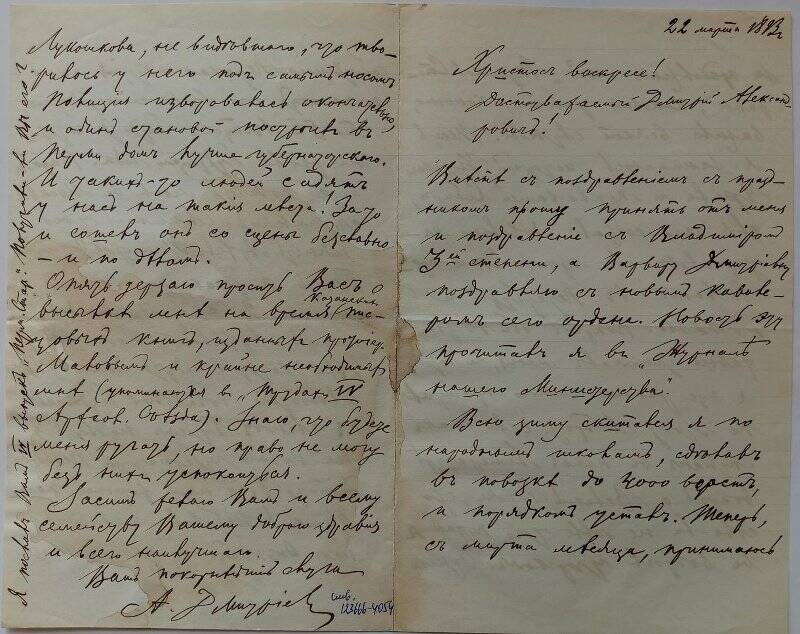 22 марта 1893 г.
Христосъ воскресе!
Достоуважаемый Дмитрій Александ-
ровичъ!
Вмѣстѣ съ поздравленіемъ съ празд-
никомъ прошу принять отъ меня
и поздравленіе съ Владиміромъ
3ей степени, а Варвару Дмитріевну
поздравляю съ новымъ кавале-
ромъ сего ордена. Новость эту
прочиталъ я въ "Журналѣ
нашего Министерства".
Всю зиму скитался я по
народнымъ школамъ, сдѣлалъ
въ повозкѣ до 4000 верстъ,
и порядкомъ усталъ. Теперь,
съ марта мѣсяца, принимаюсь
Лукошкова, не видѣвшаго, что тво-
рилось у него подъ самымъ носомъ.
Полиція изворовалась окончательно,
и одинъ становой построилъ въ
Перми домъ лучше губернаторскаго.
И такихъ-то людей садятъ
у насъ на такія мѣста! За то
и сошелъ онъ со сцены безславно
– и по дѣломъ.
Опять дерзаю просить Васъ о
высылкѣ мнѣ на время Казанскихъ пис-
цовыхъ книгъ, изданныхъ
и крайне необходимыхъ
мнѣ (упоминаются въ "Трудахъ IV
Археол. Съѣзда). Знаю, что будете
меня ругать, но право не могу
безъ нихъ успокоиться.
Засимъ желаю Вамъ и всему
семейству Вашему добраго здравія
и всего наилучшаго.
Вашъ покорнѣйшій слуга
А. Дмитріевъ
инв.
123666-4054
Я послалъ Вамъ выпускъ "Перм. Стар." Получили-ли Вы его?